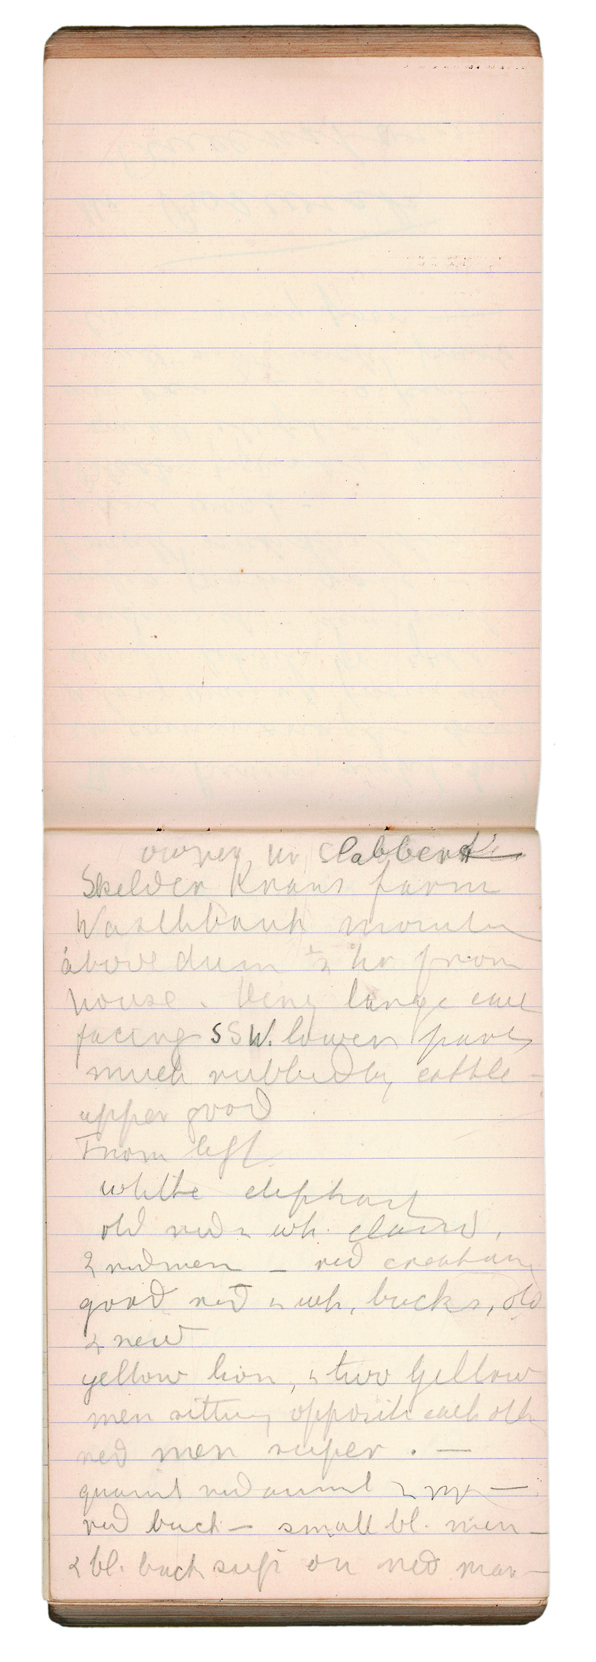 owner in Clabber
Skilder Krans farm
Washbank mountn
above dam ½ hr from
house. Very large cave
facing SSW. lower part
much rubbed by cattle -
upper good
From left
white elephant
old red & wh. eland,
2 red men - red creature
good red & wh, bucks, old
& new
yellow lion, & two yellow
men sitting opposite each oth
red men super. —
quaint red animl —
red buck - small bl. men -
& bl. buck sup: on red man -